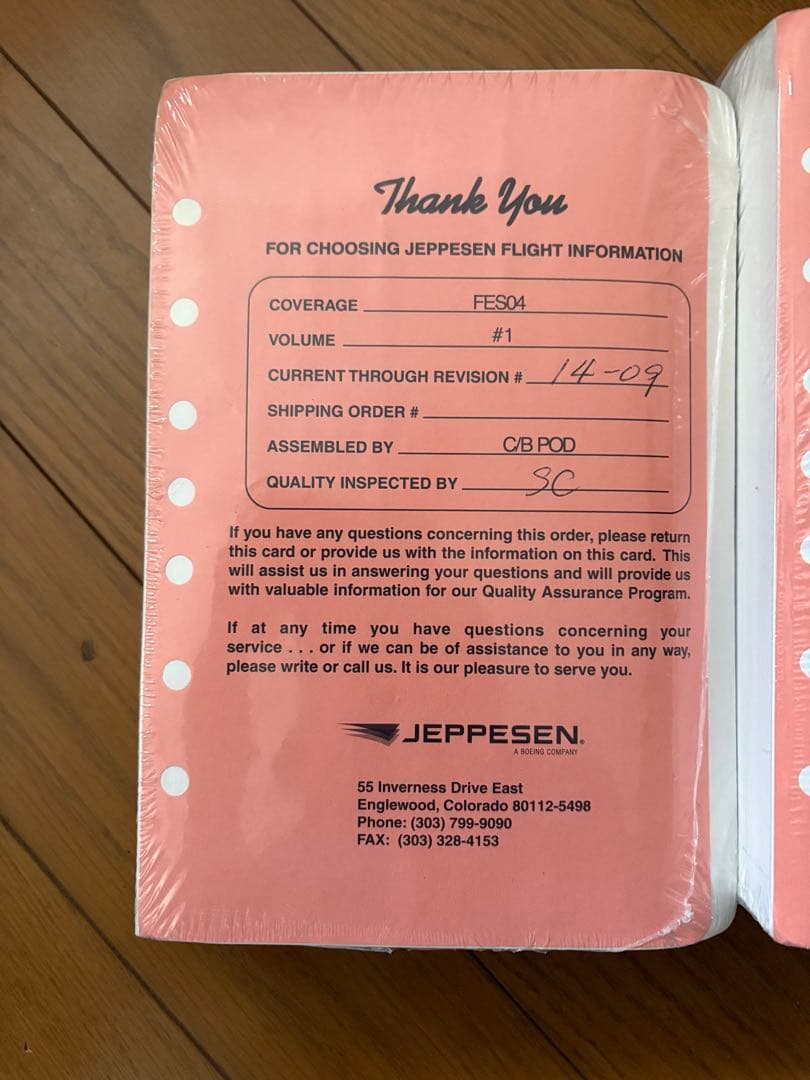 Thank You
FOR CHOOSING JEPPESEN FLIGHT INFORMATION
COVERAGE FES04
VOLUME #1
CURRENT THROUGH REVISION # 14-09
SHIPPING ORDER #
ASSEMBLED BY C/B POD
QUALITY INSPECTED BY SC
If you have any questions concerning this order, please return
this card or provide us with the information on this card. This
will assist us in answering your questions and will provide us
with valuable information for our Quality Assurance Program.
If at any time you have questions concerning your
service . . . or if we can be of assistance to you in any way,
please write or call us. It is our pleasure to serve you.
JEPPESEN®
A BOEING COMPANY
55 Inverness Drive East
Englewood, Colorado 80112-5498
Phone: (303) 799-9090
FAX: (303) 328-4153